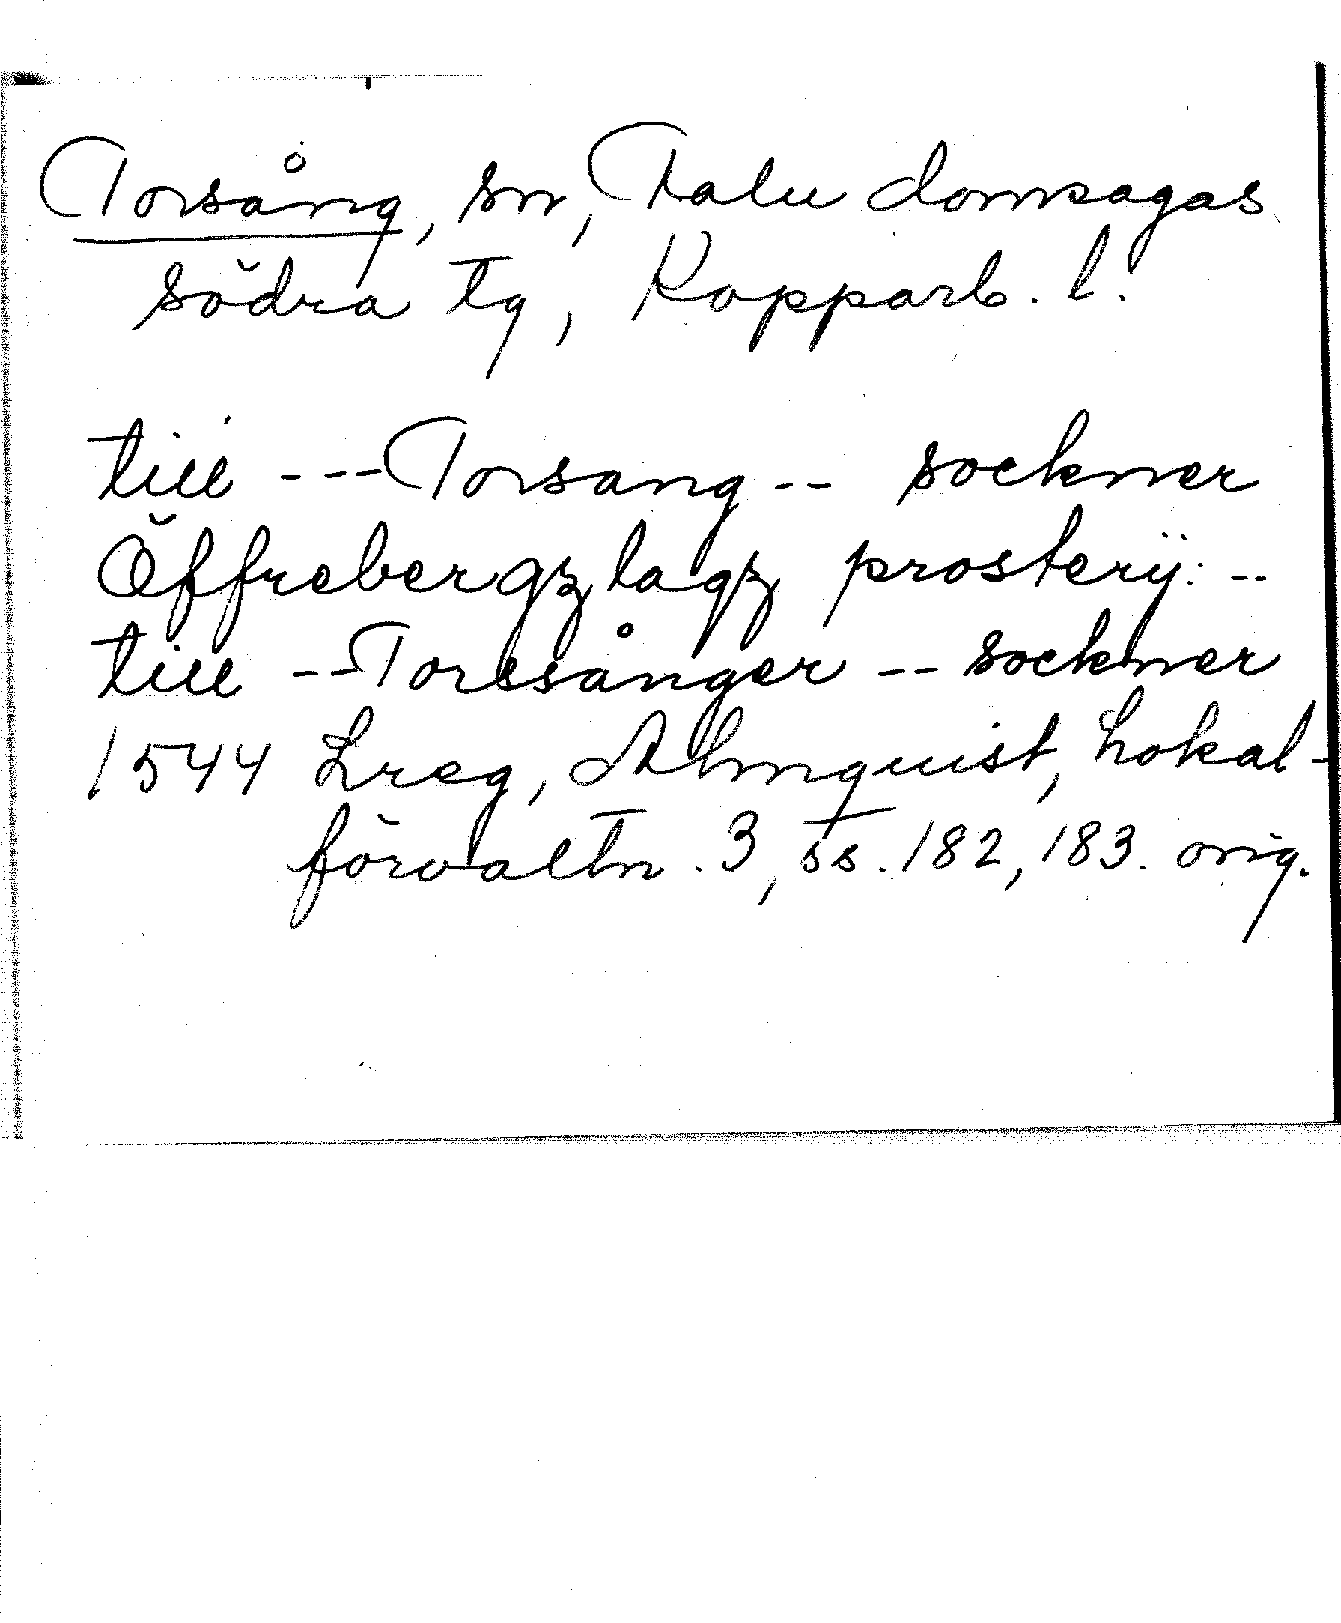 Torsång, sn, Falu domsagas
södra tg, Kopparb. l.
till --- Torsang -- sockner
Öffrebergzlagz prosterÿ: --
till -- Toresånger -- sockner
1544 Lreg, Almquist, Lokal-
förvaltn. 3, ss. 182, 183. orig.